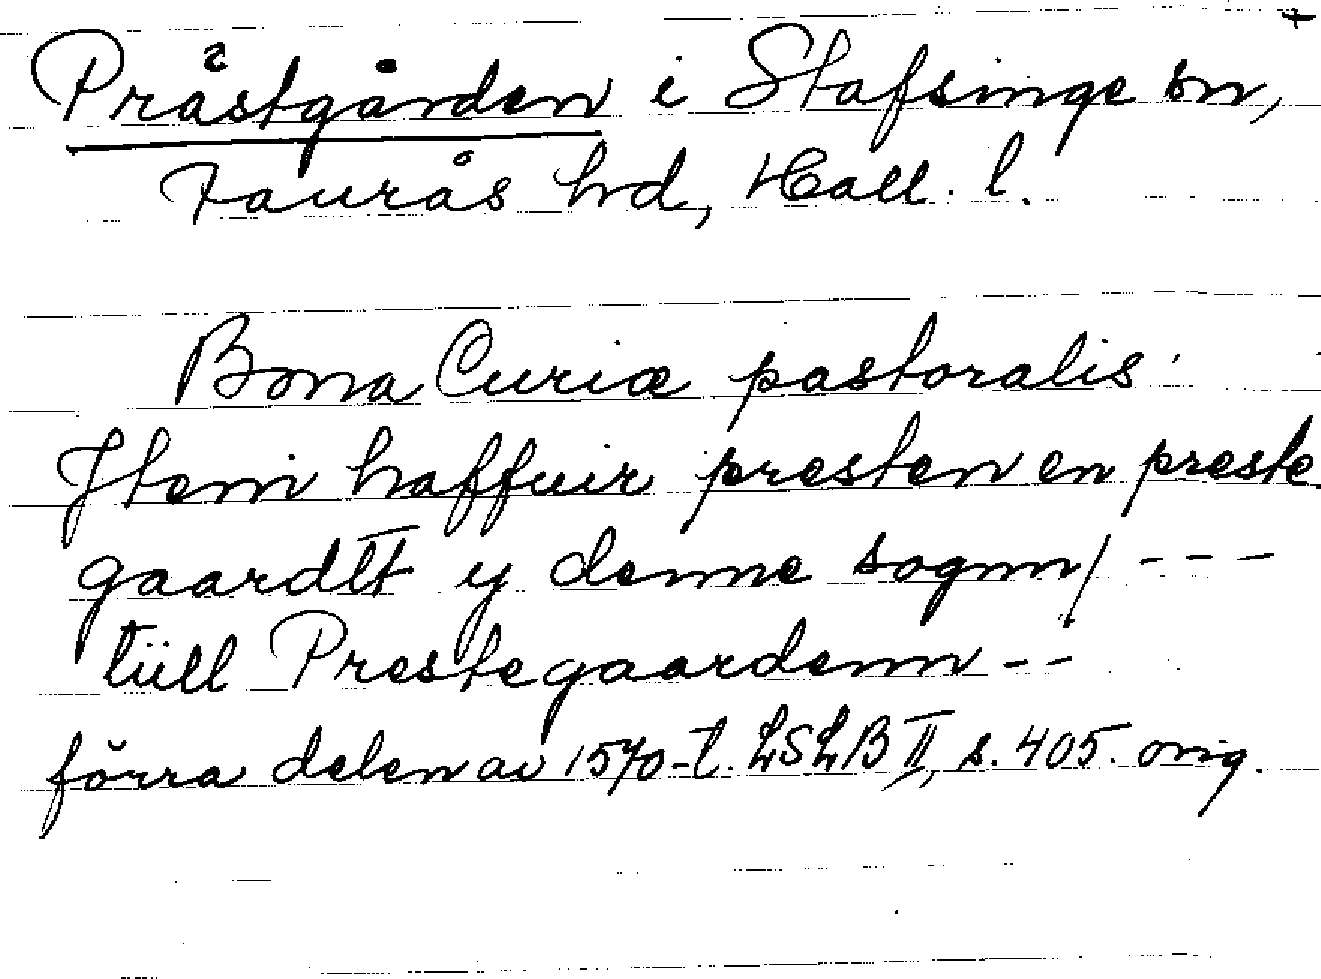 Prästgården i Stafsinge sn,
Faurås hd, Hall. l.
Bona Curiæ pastoralis.
Jtem haffuir presten en preste
gaardtt y denne sognn/ ---
tüll Prestegaardenn --
förra delen av 1570-t. LSLB II, s. 405. orig.